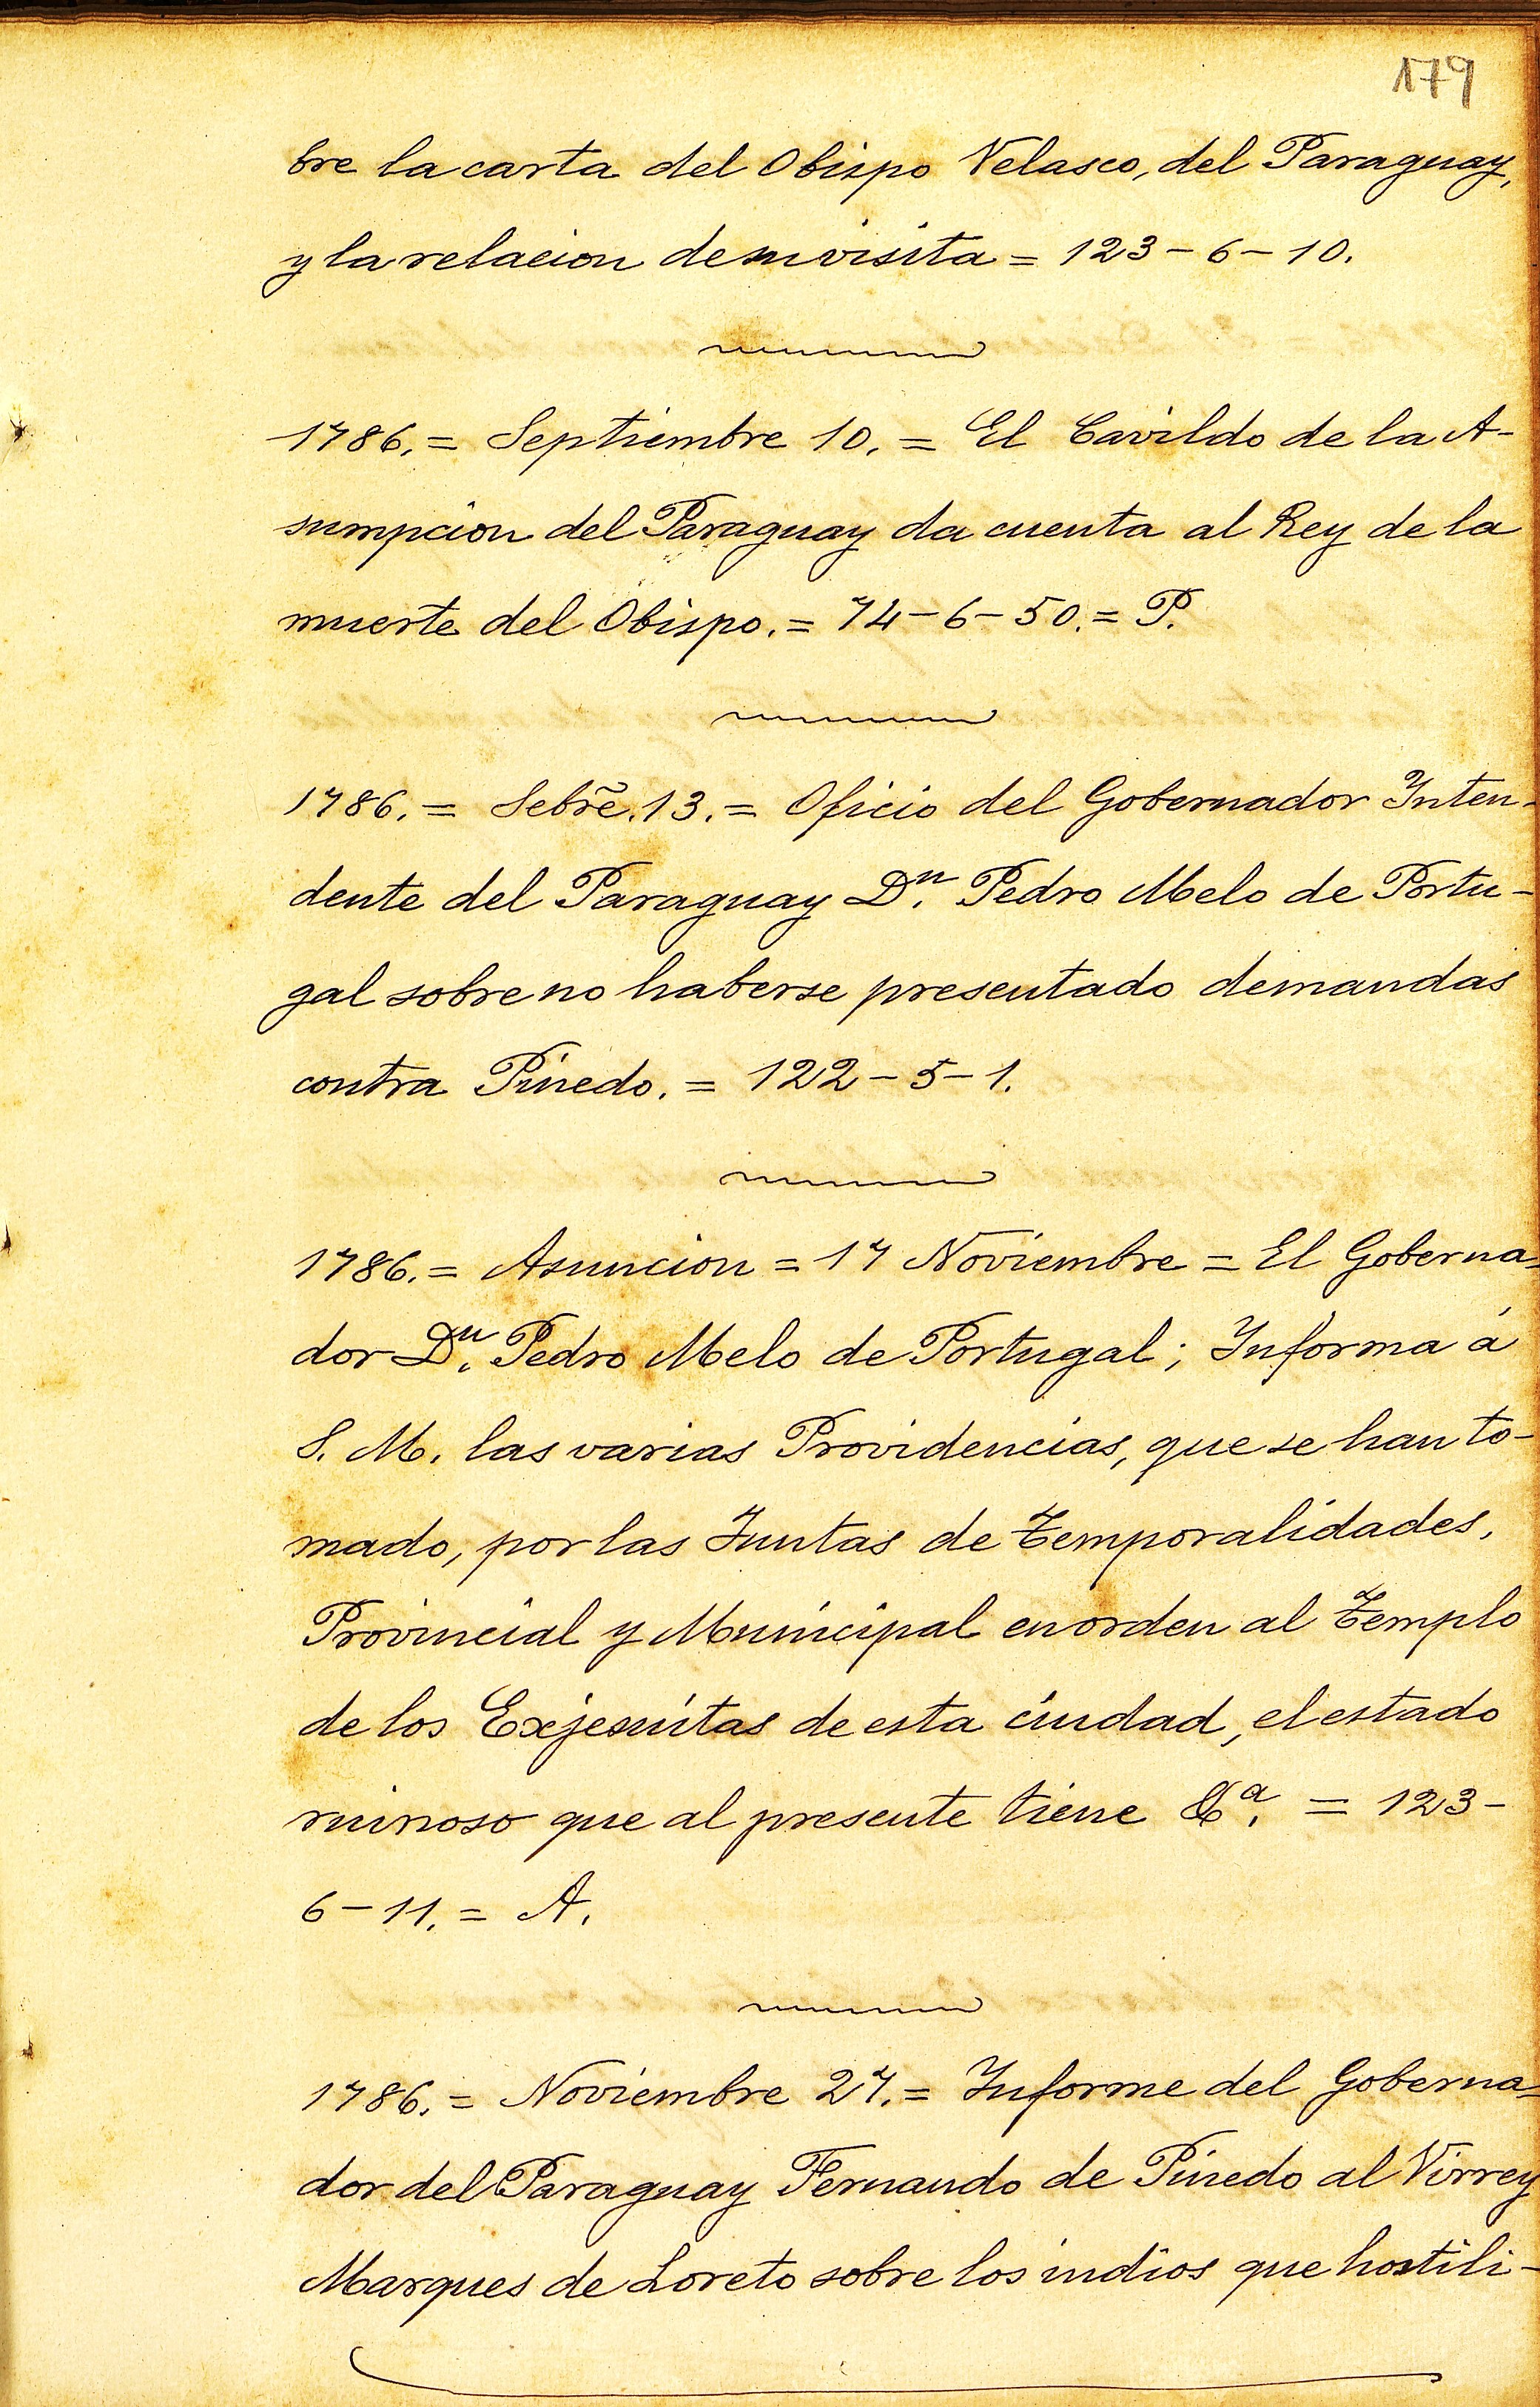 179
bre la carta del Obispo Velasco, del Paraguay,
y la relacion de su visita = 123-6-10.
1786. = Septiembre 10. = El Cavildo de la A-
sumpcion del Paraguay da cuenta al Rey de la
muerte del Obispo. = 74-6-50. = P.
1786. = Sebrẽ. 13. = Oficio del Gobernador Inten-
dente del Paraguay Dⁿ. Pedro Melo de Portu-
gal sobre no haberse presentado demandas
contra Pinedo. = 122-5-1.
1786. = Asuncion = 17 Noviembre = El Goberna-
dor Dⁿ. Pedro Melo de Portugal; Informa á
S. M. las varias Providencias, que se han to-
mado, por las Juntas de Temporalidades,
Provincial y Municipal en orden al Templo
de los Exjesuitas de esta ciudad, el estado
ruinoso que al presente tiene &ª. = 123-
6-11. = A.
1786. = Noviembre 27. = Informe del Goberna-
dor del Paraguay Fernando de Pinedo al Virrey
Marques de Loreto sobre los indios que hostili-